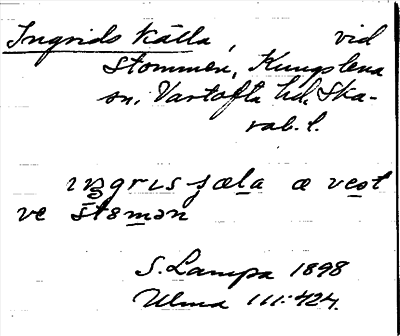 Ingrids Källa, vid
Stommen, Kungslena
sn. Vartofta hd. Ska-
rab. l.
ıŋgrıs ʃæla æ vest
ve stomən
S. Lampa 1898
Ulma 111:424.